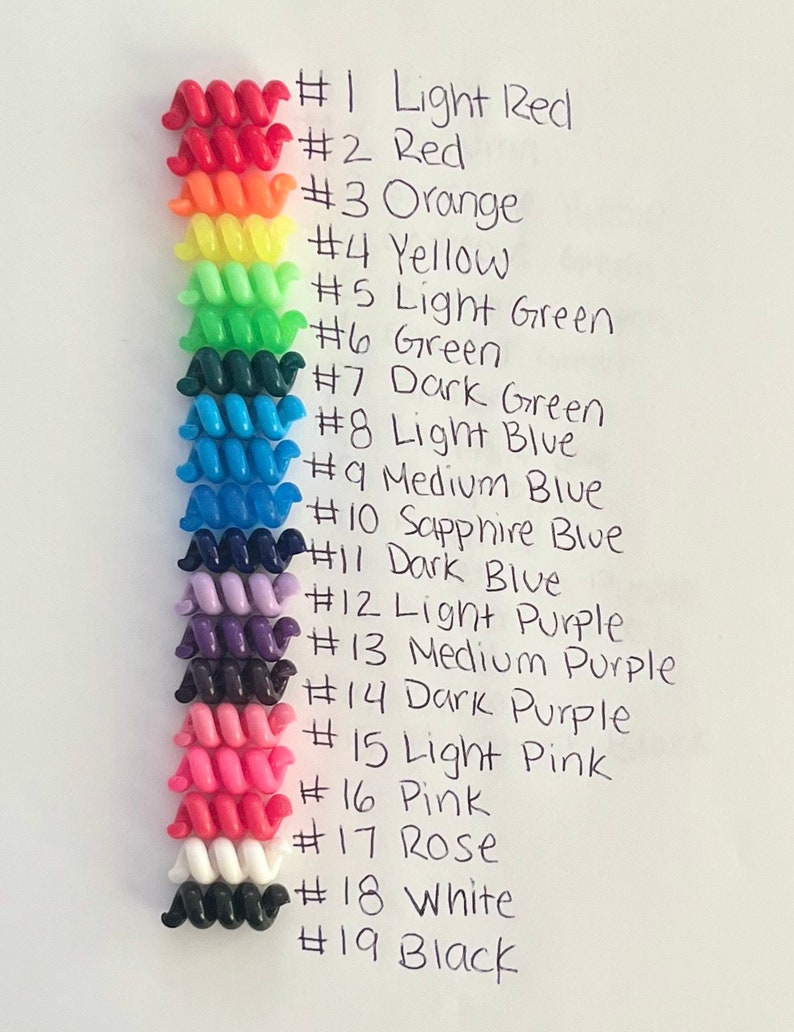 #1 Light Red
#2 Red
#3 Orange
#4 Yellow
#5 Light Green
#6 Green
#7 Dark Green
#8 Light Blue
#9 Medium Blue
#10 Sapphire Blue
#11 Dark Blue
#12 Light Purple
#13 Medium Purple
#14 Dark Purple
#15 Light Pink
#16 Pink
#17 Rose
#18 White
#19 Black